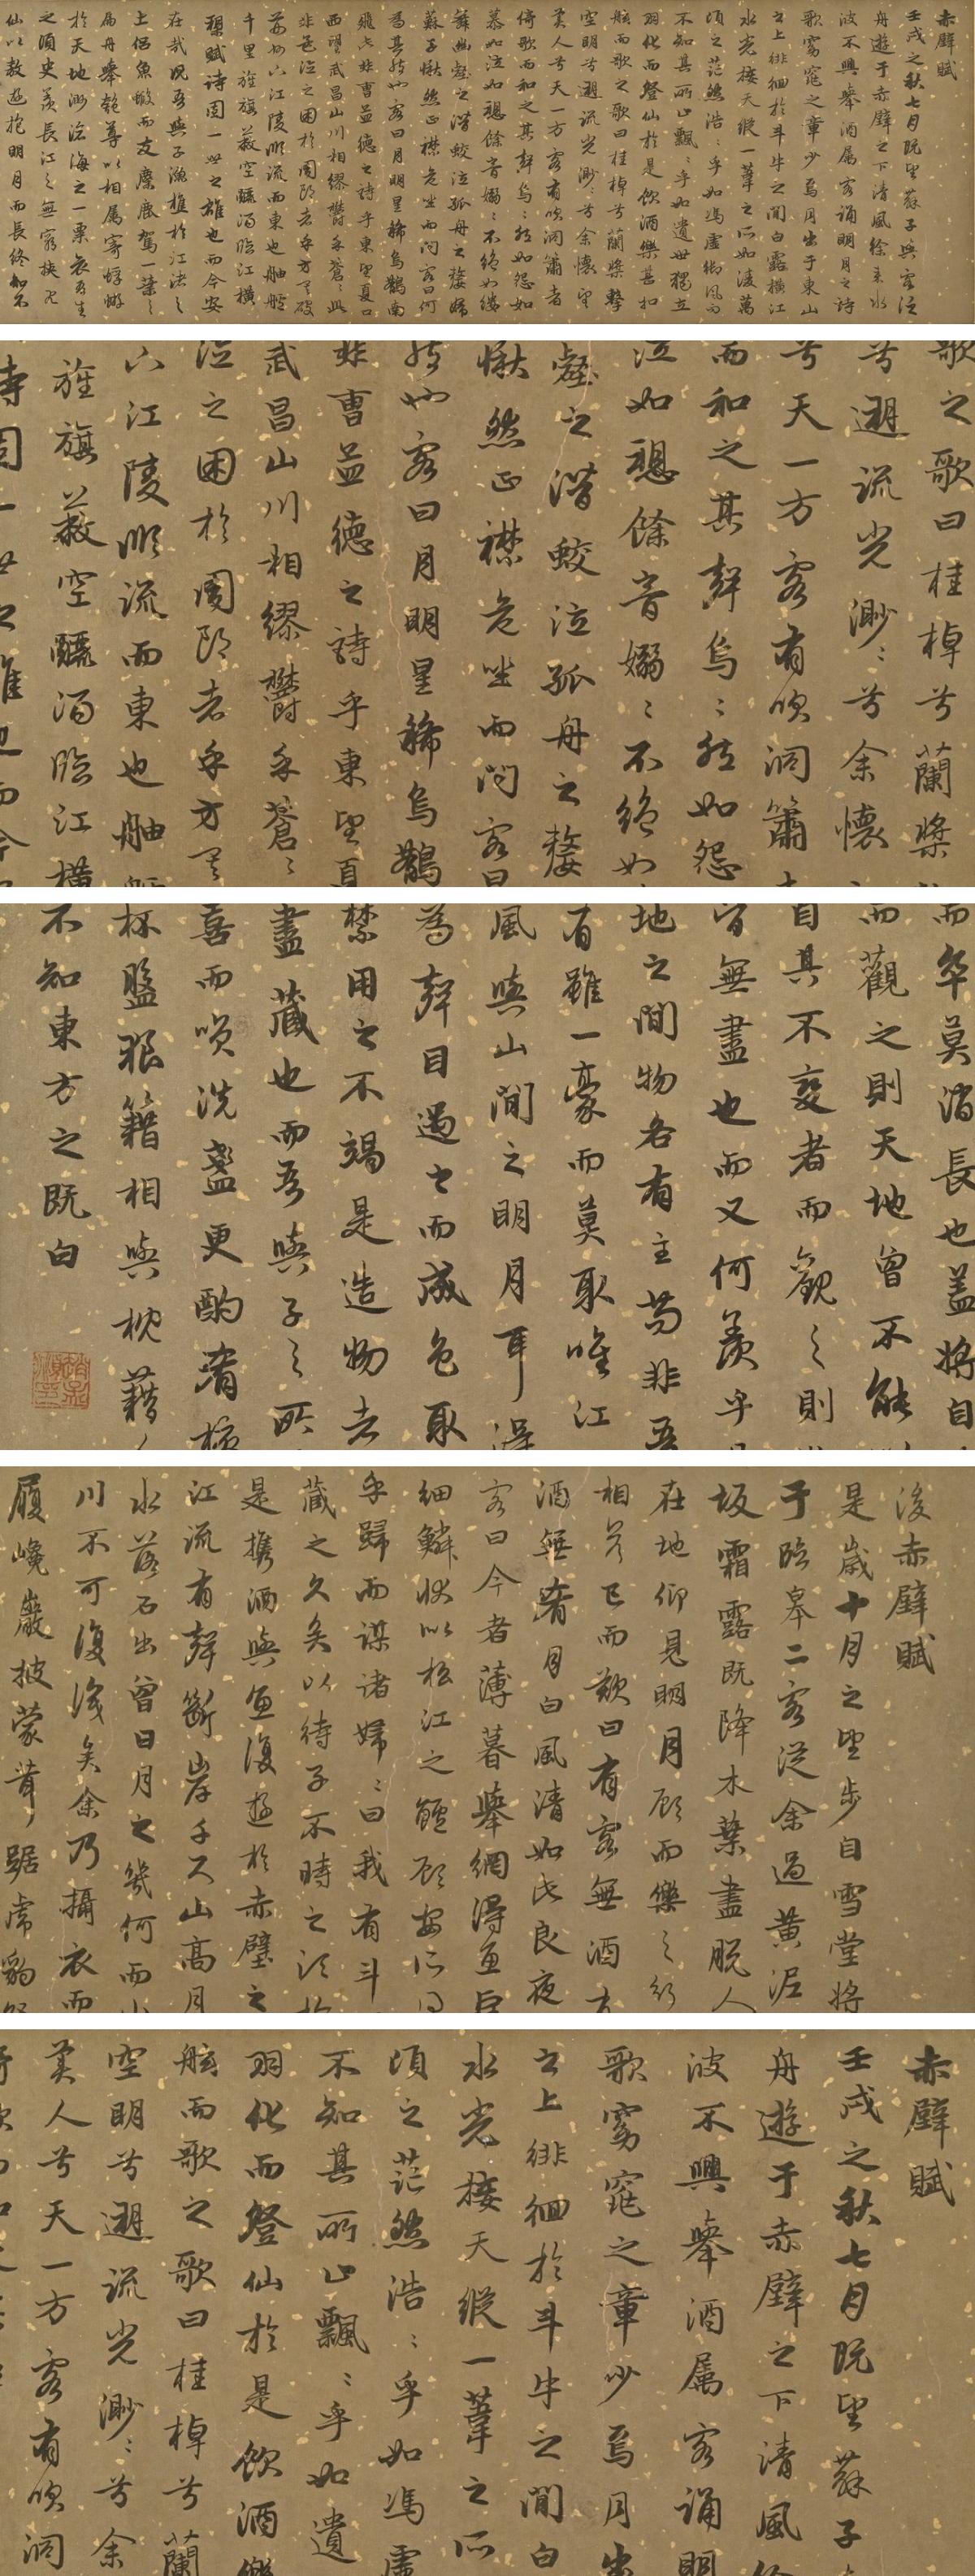 赤壁賦
壬戌之秋七月既望蘇子與客泛
舟遊于赤壁之下清風徐來水
波不興舉酒属客誦明月之詩
歌窈窕之章少焉月出于東山
之上徘徊於斗牛之間白露橫江
水光接天縱一葦之所如淩萬
頃之茫然浩〻乎如馮虛御風而
不知其所止飄〻乎如遺世獨立
羽化而登仙於是飲酒樂甚扣
舷而歌之歌曰桂棹兮蘭槳擊
空明兮遡流光渺〻兮余懷望
美人兮天一方客有吹洞簫者
倚歌而和之其聲烏〻然如怨如
慕如泣如愬餘音嫋〻不絕如縷
舞幽壑之潛蛟泣孤舟之嫠婦
蘇子愀然正襟危坐而問客曰何
為其然也客曰月明星稀烏鵲南
飛此非曹孟德之詩乎東望夏口
西望武昌山川相繆鬱乎蒼〻此
非孟德之困於周郎者乎方其破
荊州下江陵順流而東也舳艫
千里旌旗蔽空釃酒臨江橫
槊賦詩固一世之雄也而今安
在哉況吾與子漁樵於江渚之
上侶魚蝦而友麋鹿駕一葉之
扁舟舉匏尊以相属寄蜉蝣
於天地渺滄海之一粟哀吾生
之須臾羨長江之無窮挾飛
仙以遨遊抱明月而長終知不
歌之歌曰桂棹兮蘭槳
兮遡流光渺〻兮余懷
兮天一方客有吹洞簫
而和之其聲烏〻然如怨
泣如愬餘音嫋〻不絕如
壑之潛蛟泣孤舟之嫠
愀然正襟危坐而問客曰
然也客曰月明星稀烏鵲
非曹孟德之詩乎東望夏
武昌山川相繆鬱乎蒼〻
泣之困於周郎者乎方其
下江陵順流而東也舳艫
旌旗蔽空釃酒臨江橫
詩固一世之雄也而今
而卒莫消長也蓋將自
而觀之則天地曾不能
自其不變者而觀之則
皆無盡也而又何羨乎
地之間物各有主苟非吾
有雖一豪而莫取唯江
風與山間之明月耳得
為聲目遇之而成色取
禁用之不竭是造物者
盡藏也而吾與子之所
喜而笑洗盞更酌肴核
杯盤狼籍相與枕藉
不知東方之既白
後赤壁賦
是歲十月之望步自雪堂將
于臨皋二客從余過黃泥
坂霜露既降木葉盡脫人
在地仰見明月顧而樂之行
相答已而歎曰有客無酒有
酒無肴月白風清如此良夜
客曰今者薄暮舉網得魚巨
細鱗狀似松江之鱸顧安所得
乎歸而謀諸婦〻曰我有斗
藏之久矣以待子不時之須於
是攜酒與魚復遊於赤壁之
江流有聲斷岸千尺山高月
水落石出曾日月之幾何而山
川不可復識矣余乃攝衣而
履巉巖披蒙茸踞虎豹
赤壁賦
壬戌之秋七月既望蘇子
舟遊于赤壁之下清風徐
波不興舉酒属客誦明
歌窈窕之章少焉月出
之上徘徊於斗牛之間白
水光接天縱一葦之所
頃之茫然浩〻乎如馮虛
不知其所止飄〻乎如遺
羽化而登仙於是飲酒樂
舷而歌之歌曰桂棹兮蘭
空明兮遡流光渺〻兮余
美人兮天一方客有吹洞